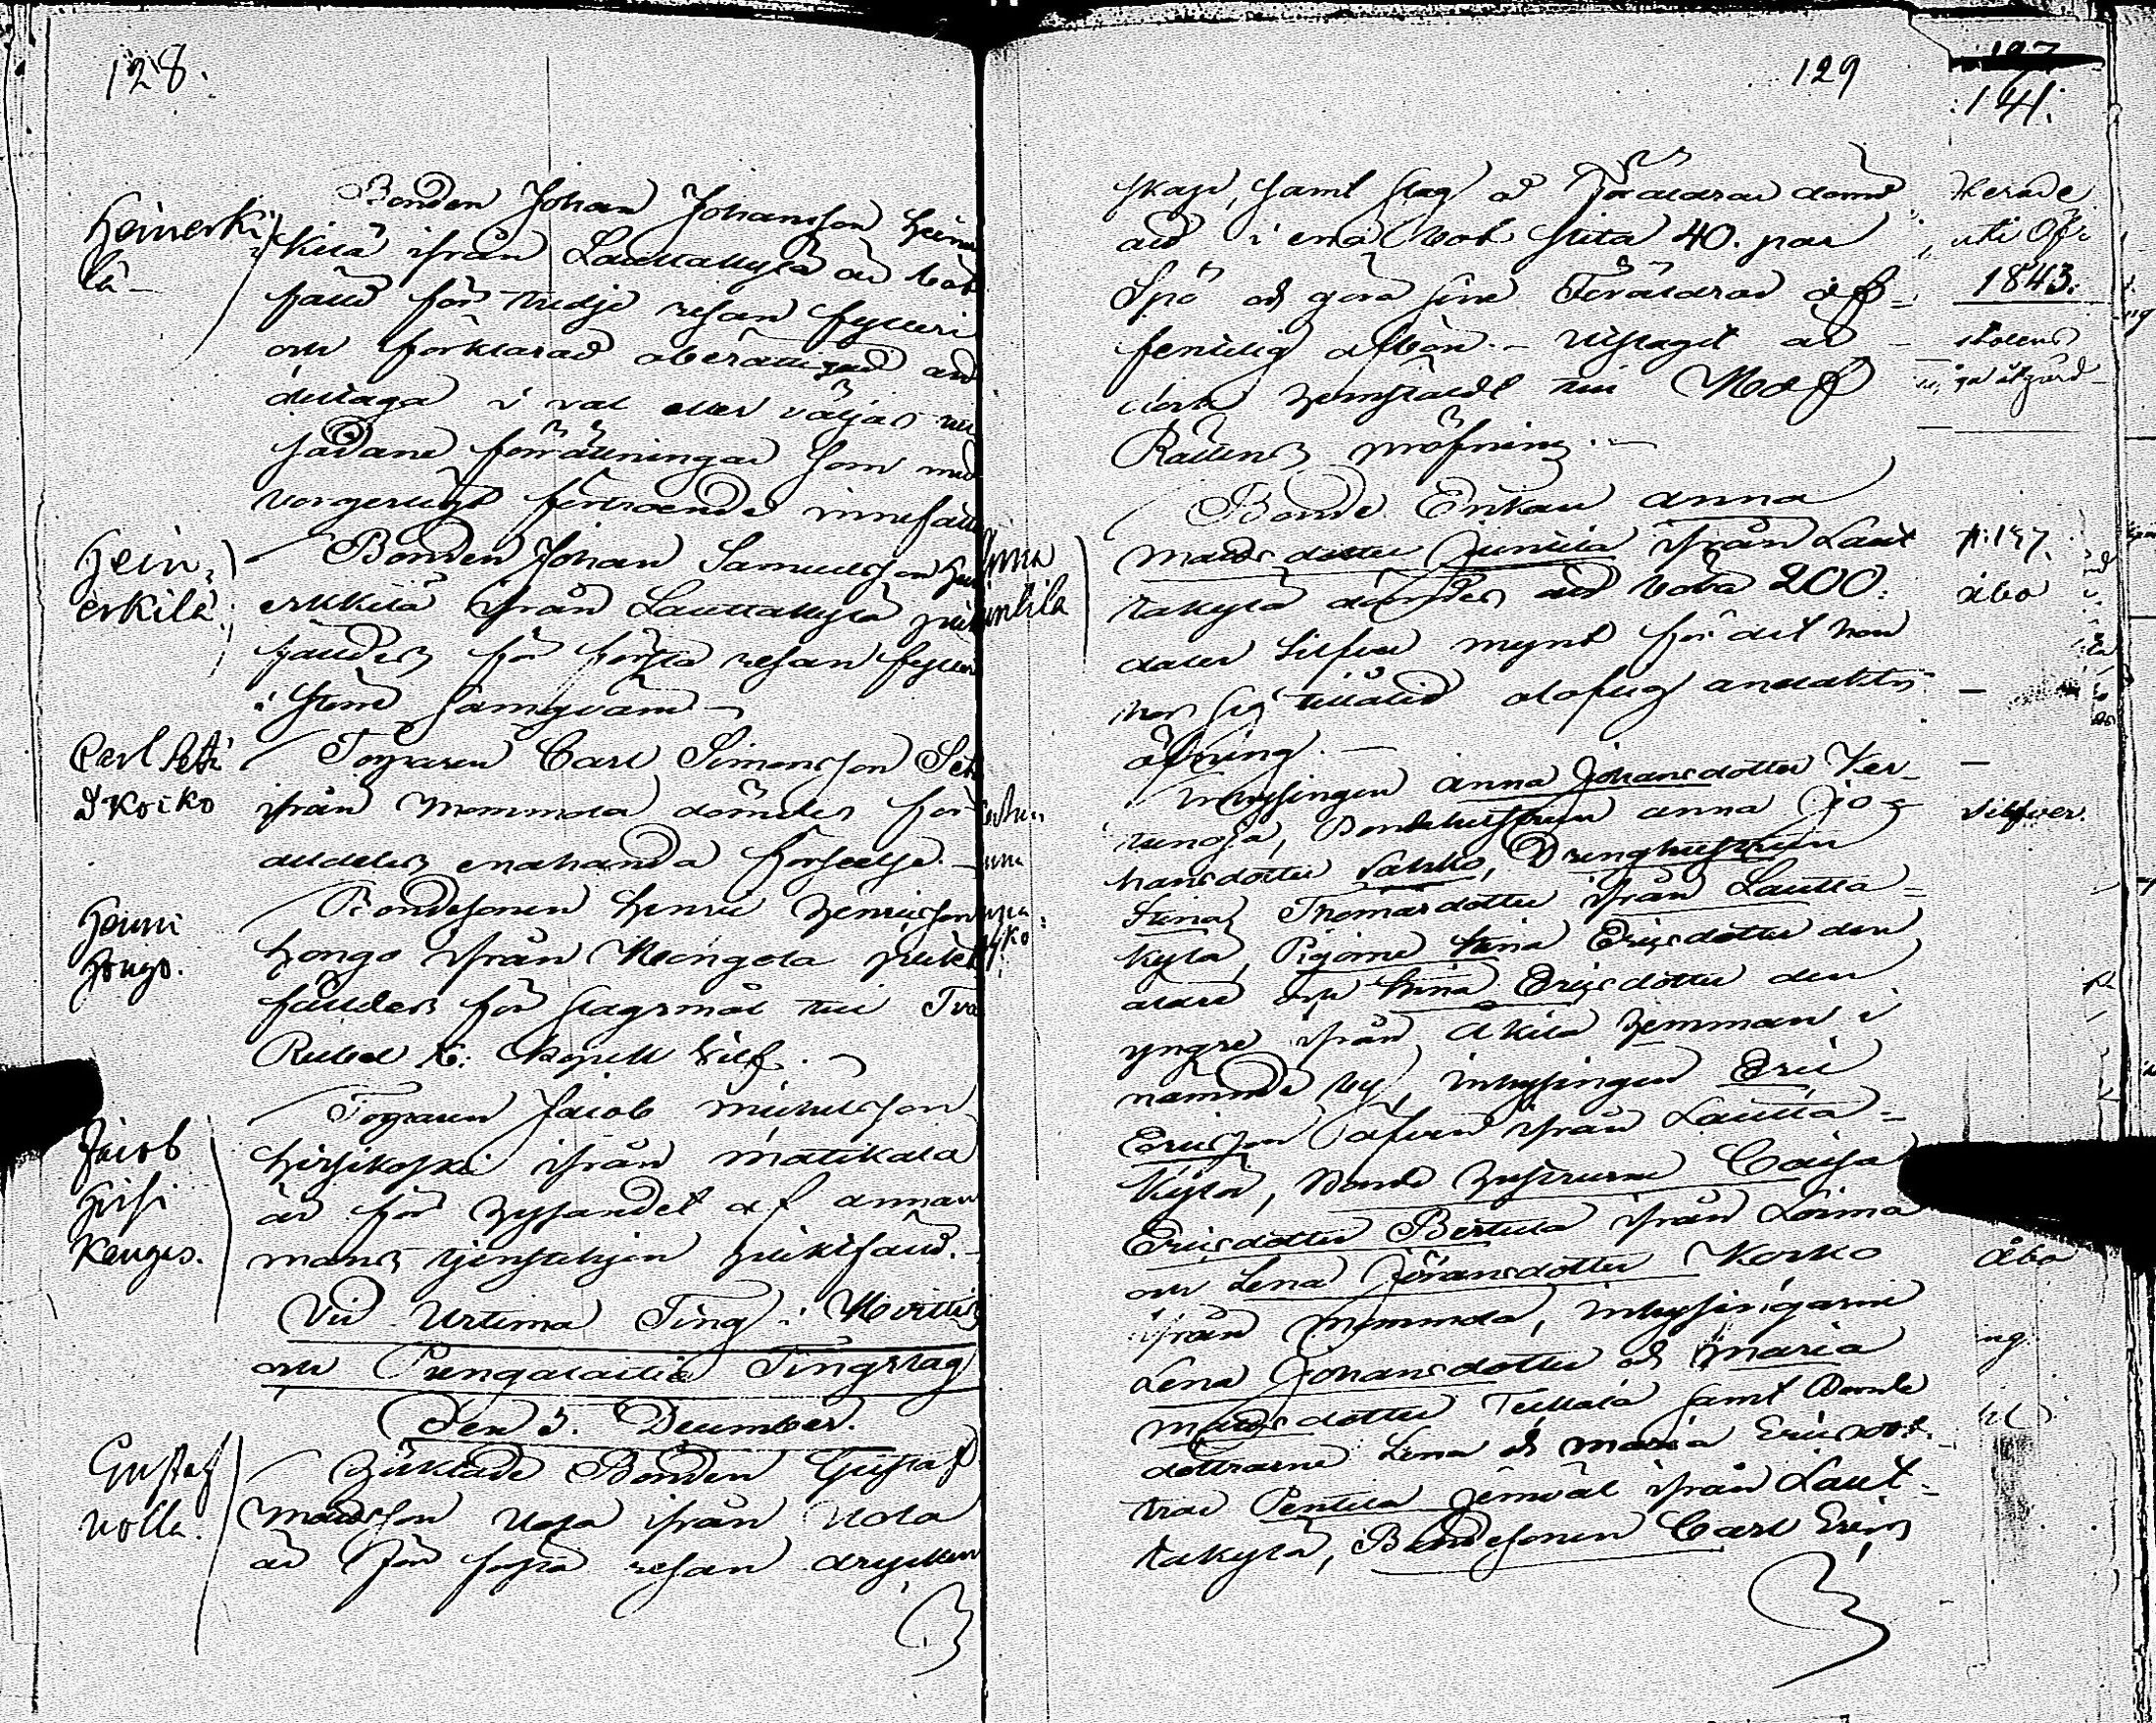 128.
Heinerki
lä
Bonden Johan Johansson Hein
kilä ifrån Lauttakylä är böt
fäld för tredje resan fylleri
och förklarad oberättigad att
deltaga i val eller väljas till
sådane förrättningar som med
borgerligt förtroende innefatt
Hein
erkilä
Bonden Johan Samuelsson Hein
erkkilä ifrån Lauttakylä plikt
fäldes för första resan fylleri
i stem sammanb
Carl Seti
Skoiko
Torparen Carl Simonsson Set
ifrån Mommola dömdes för
alldeles enahanda förseelse.
Henric
Hongo.
Bondesonen Henric Henricsson
Hongo ifrån Keingola plikt
fälldes för slagsmål till Två
Rubel K: Kopek Silf.
Jacob
Hirsi
Kengis.
Torparen Jacob Michelsson
Hirsikoski ifrån Matikala
är för hysandet af annan
mans tjenstehjon pliktfäld.
Vid Urtima Ting i Hvittis
och Pungalaitio Tingslag
Den 3. December.
Gustaf
Nolla.
Häktade Bonden Gustaf
Mattsson Nola ifrån Nola
är för första resan dryckes
129
127
141.
skap, samt slag å Föräldrar dömd
att i ena bot slita 40. par
Spö och göra sine Föräldrar of
fentelig afbön. utslaget är
dock hemstäldt till Hof
Rättens pröfning.
Anna
Juntila
Bonde Enkan Anna
Matts dotter Juntila ifrån Laut
takylä dömdes att böta 200:
daler Silfver mynt för det hon
hos sig tillåtit olaflig andakts
öfning.
Inhysingen Anna Johansdotter Ker
tunoja, Bondehustrun Anna Jo
hansdotter Sahko, Drenghustrun
Stina Thomasdotter ifrån Lautta
kylä, Pigorne Stina Ericsdotter den
äldre och Stina Ericsdotter den
yngre ifrån Akila hemman i
nämnde by, inhysingen Eric
Ericsson Päfvin ifrån Lautta
kylä, Bonde hustrurne Caisa
Ericsdotter Bertula ifrån Loima
och Lena Göransdotter Korko
ifrån Mommola, inhysingarne
Lena Johansdotter och Maria
Matts dotter Teikala samt Bonde
döttrarne Lena och Maria Ericsdöt
trar Pentila jemväl ifrån Laut
takylä, Bondesonen Carl Erics
Herade
1843.
stolens
ga åtgärd
N: 127.
åbo
Silfver.
Åbo
ng.